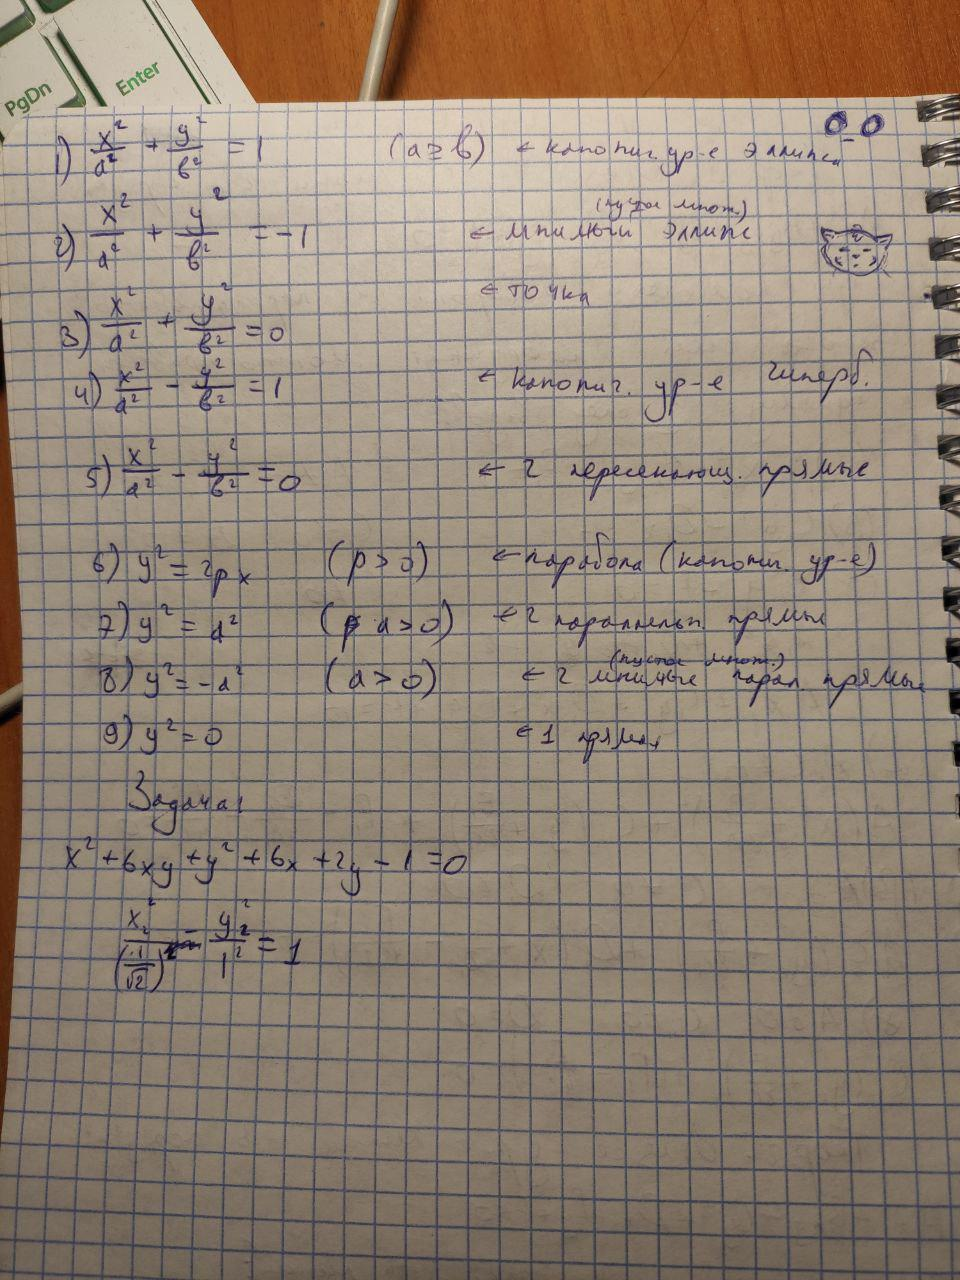 PgDn
Enter
1) x²/a² + y²/в² = 1 (a ≥ b) ← канонич. ур-е эллипса
2) x²/a² + y²/в² = -1 ← мнимый эллипс (пустое множ.)
3) x²/a² + y²/в² = 0 ← точка
4) x²/a² - y²/в² = 1 ← канонич. ур-е гиперб.
5) x²/a² - y²/в² = 0 ← 2 пересекающ. прямые
6) y² = 2px (p > 0) ← парабола (канонич. ур-е)
7) y² = a² (a > 0) ← 2 параллельн. прямые
8) y² = -a² (a > 0) ← 2 мнимые парал. прямые (пустое множ.)
9) y² = 0 ← 1 прямая
Задача 1
x² + 6xy + y² + 6x + 2y - 1 = 0
x₂²/(1/√2)² - y₂²/1² = 1